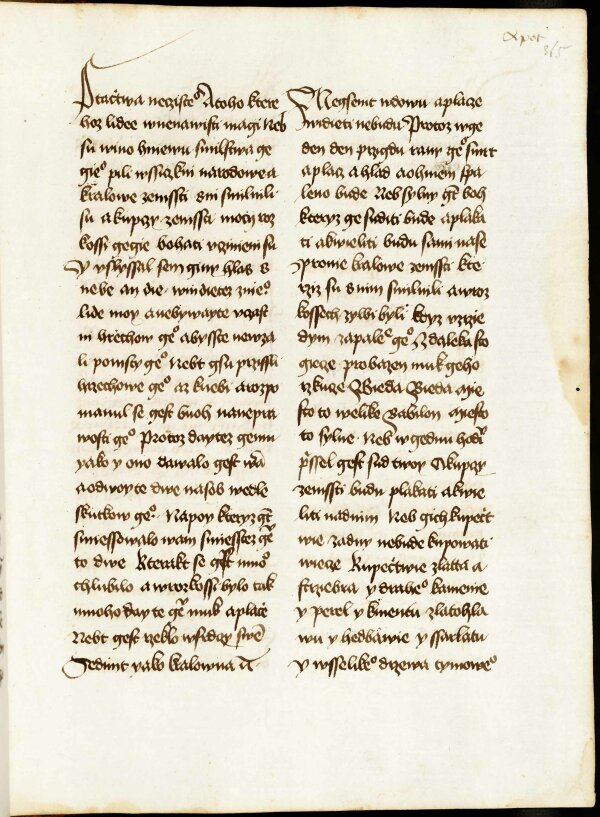 Apoc
365
Ptactwa neczisteo Atoho ktere
hoz lidee wnenawisti magi Neb
su wino hniewu smilstwa ge
gieo pili wssiczkni narodowe a
kralowe zemssti s ni smilnili
su a kupczy zemssti moczy roz
kossi gegie bohati uczinieni su
y uslyssal sem giny hlas s
nebe an die windietez znieo
lide moy a nebywayte uczast
ni hrzechow geo abysste newza
li pomsty geo Nebt gsu przissli
hrzechowe geo az knebi a rozpo
manul se gest buoh nanepra
wosti geo Protoz daytez gemu
yako y ono dawalo gest wam
a odwoyte dwe nasob wedle
skutkow geo Napoy kteryz gt
smiessowalo wam smiessiez ge
to dwe Kterakt se gest mno
chlubilo a wrozkossi bylo tak
mnoho dayte ge muk a placze
Nebt gest rzeklo wsrdczy swe
Sedimt yako kralowna a
Negsemt wdowu a placze
widieti nebudu Protoz w ge
den den przigdu rany geo smrt
a placz a hlad a ohniem spa
leno bude Neb sylny gt boh
kteryz ge suditi bude a plaka
ti a kwieliti budu sami nase
prome kralowe zemssti kte
rziz su s nim smilnili a wroz
kossech zywi byli kdyz uzrzie
dym zapalee geo Zdaleka sto
giecze pro bazen muk geho
rzkucze Bieda Bieda mie
sto to welike Babilon miesto
to sylne Neb w gednu hod
przssel gest sud twoy A kupczy
zemssti budu plakati a kwie
liti nadnim Neb gich kupect
wie zadny nebude kupowati
wiecze Kupectwie zlatta a
strziebra y draheo kamenie
y perel y kmentu zlatohla
wu y hedbawie y ssarlatu
y wsselikeo drzewa tymoweo